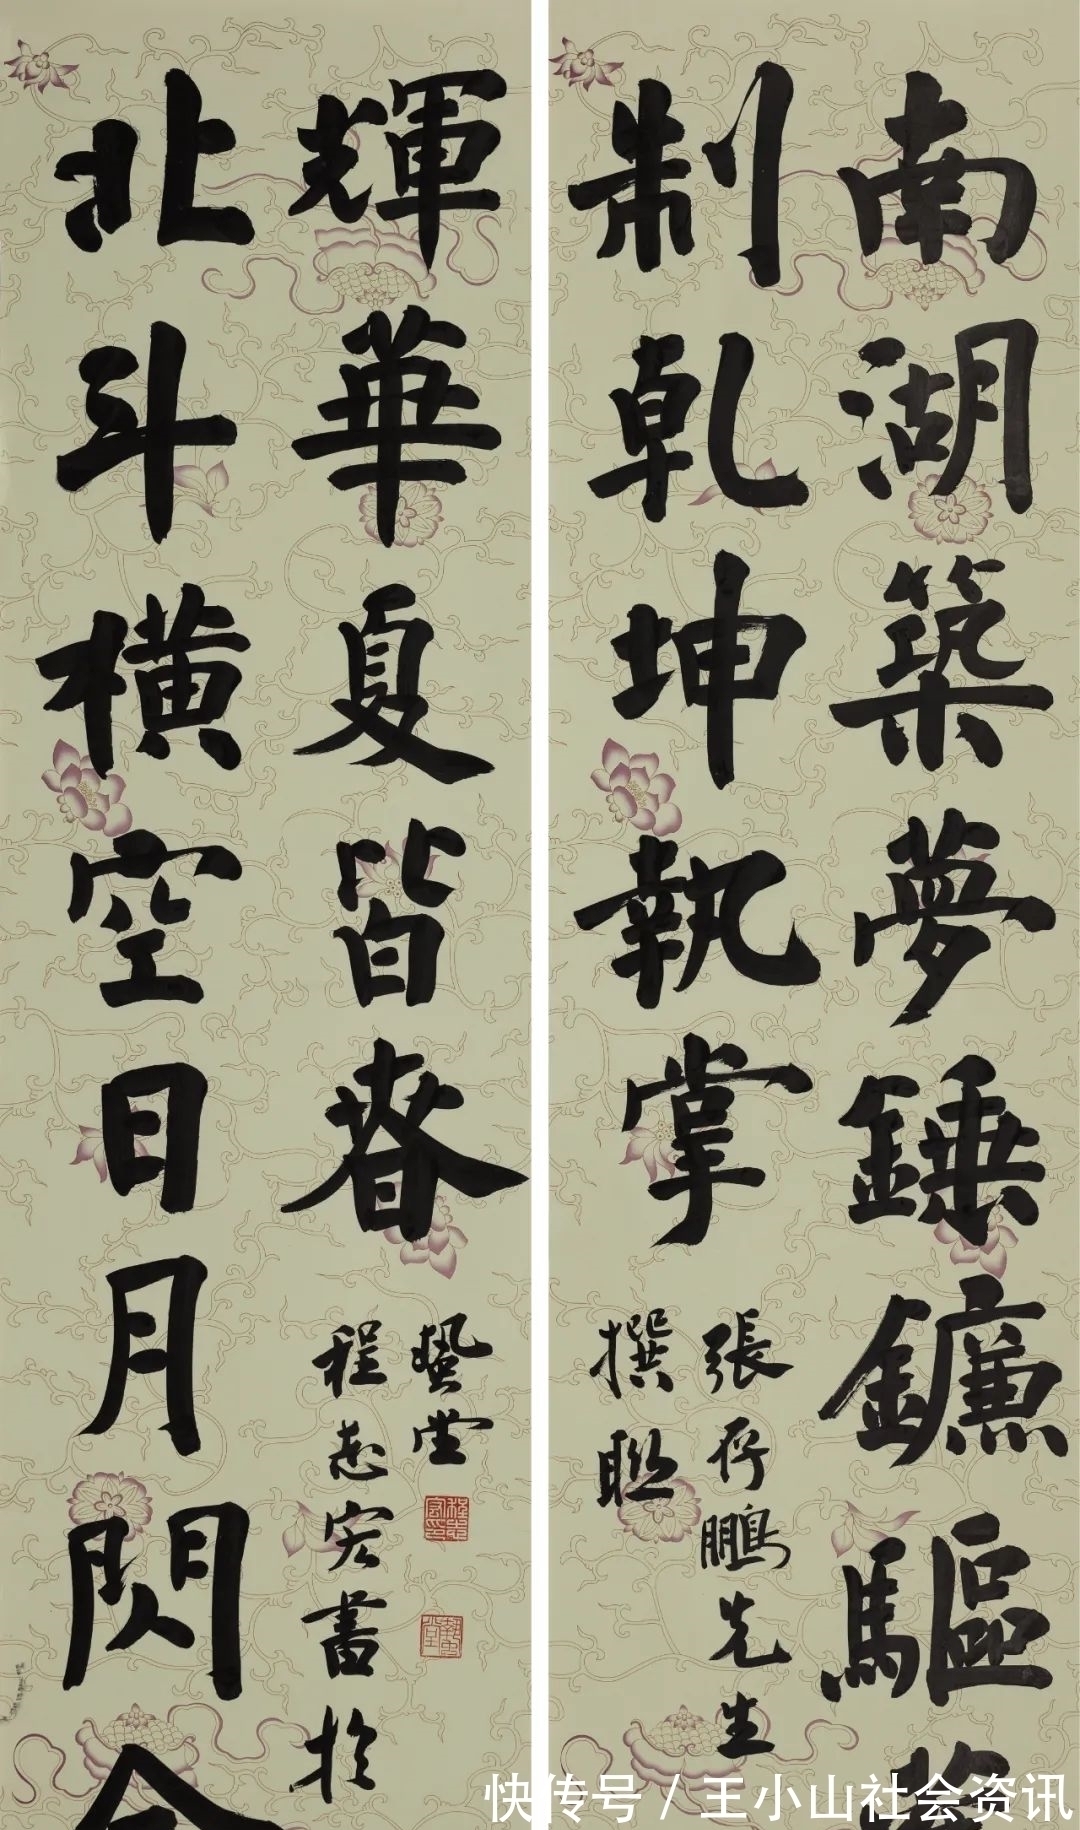 南湖築夢錘鐮驅
制乾坤執掌
張存鵬先生
撰聯
北斗橫空日月閃
輝華夏皆春
藝堂
程志宏書於
快传号 / 王小山社会资讯